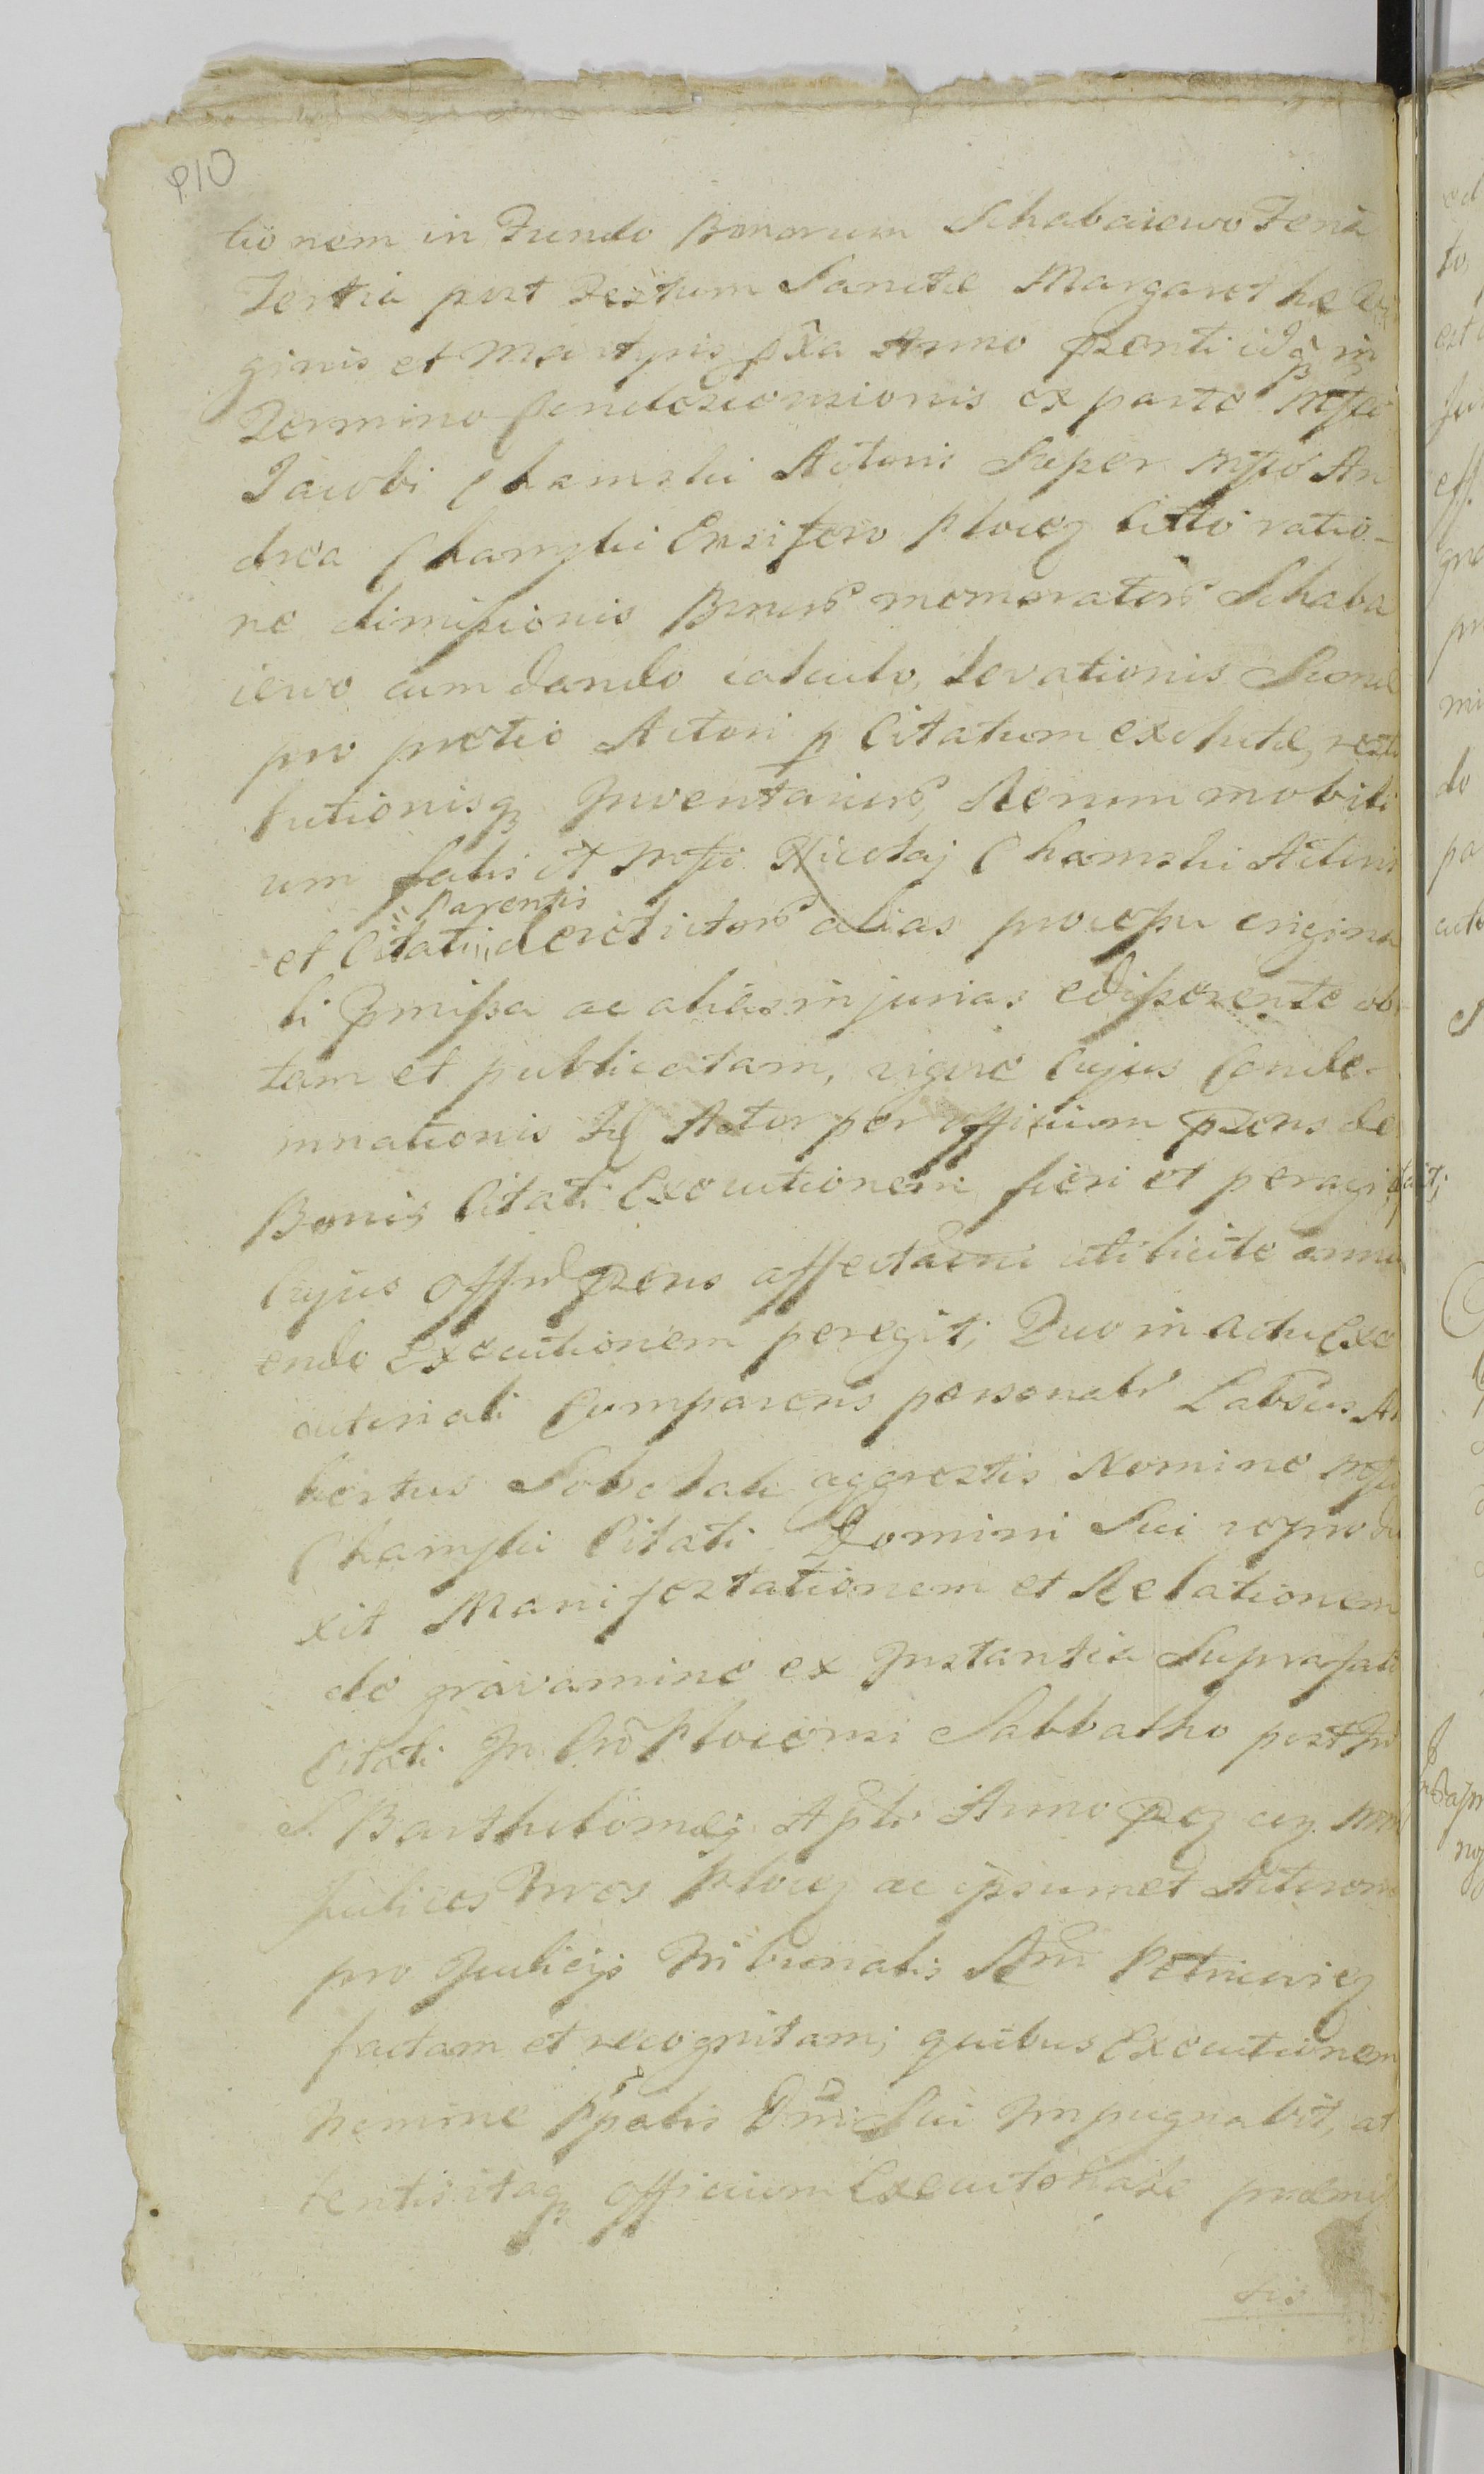 P10
tionem in Fundo Bonorum Schabaiewo Feria
Tertia post Festum Sanctae Margarethae Vir
ginis et Martyris pxa Anno psenti in
Termino Condescensionis ex parte Mfci
Jacobi Chamski Actoris Super Mfco An
drea Chamski Ensifero Plocej Citto ratio-
ne dimissionis Bnrum memoratorum Schaba
iewo cum dando calculo, levationis Summae
pro pretio Actori p Citatum exolutae, resti
tutionisq Inventariorum, Rerum mobili
um fatis et Mfci Nicolaj Chamski Actoris
Parentis
et Citati derelictorum alias prout
li pmissa ac alias injurias edisserente ob
tam et publicatam, vigore Cujus Conde-
mnationis Actor per officium psens de
Bonis Citati Executionem fieri et peragi petiit;
Cujus Offm psens affectaoni uti licitae annu
endo Executionem peregit; Quo in actu Exe
cutoriali Comparens personalr Labsus Al
bertus Sobczak aggrestis Nomine Mfci
Chamski Citati Domini Sui repro du
xit Manifestationem et Relationem
de gravamine ex Instantia Suprafati
Citati In Cro Plocensi Sabbatho post
S. Bartholomaej Apli Anno
Judices Plocej ac ipsummet Actorem
pro Judicijs Tribunalis Petricoviej
factam et recognitam; quibus Executionem
Nomine Ppalis Dni Sui Impugnabit, at
tentis itaq officium Executoriale praemis
sis